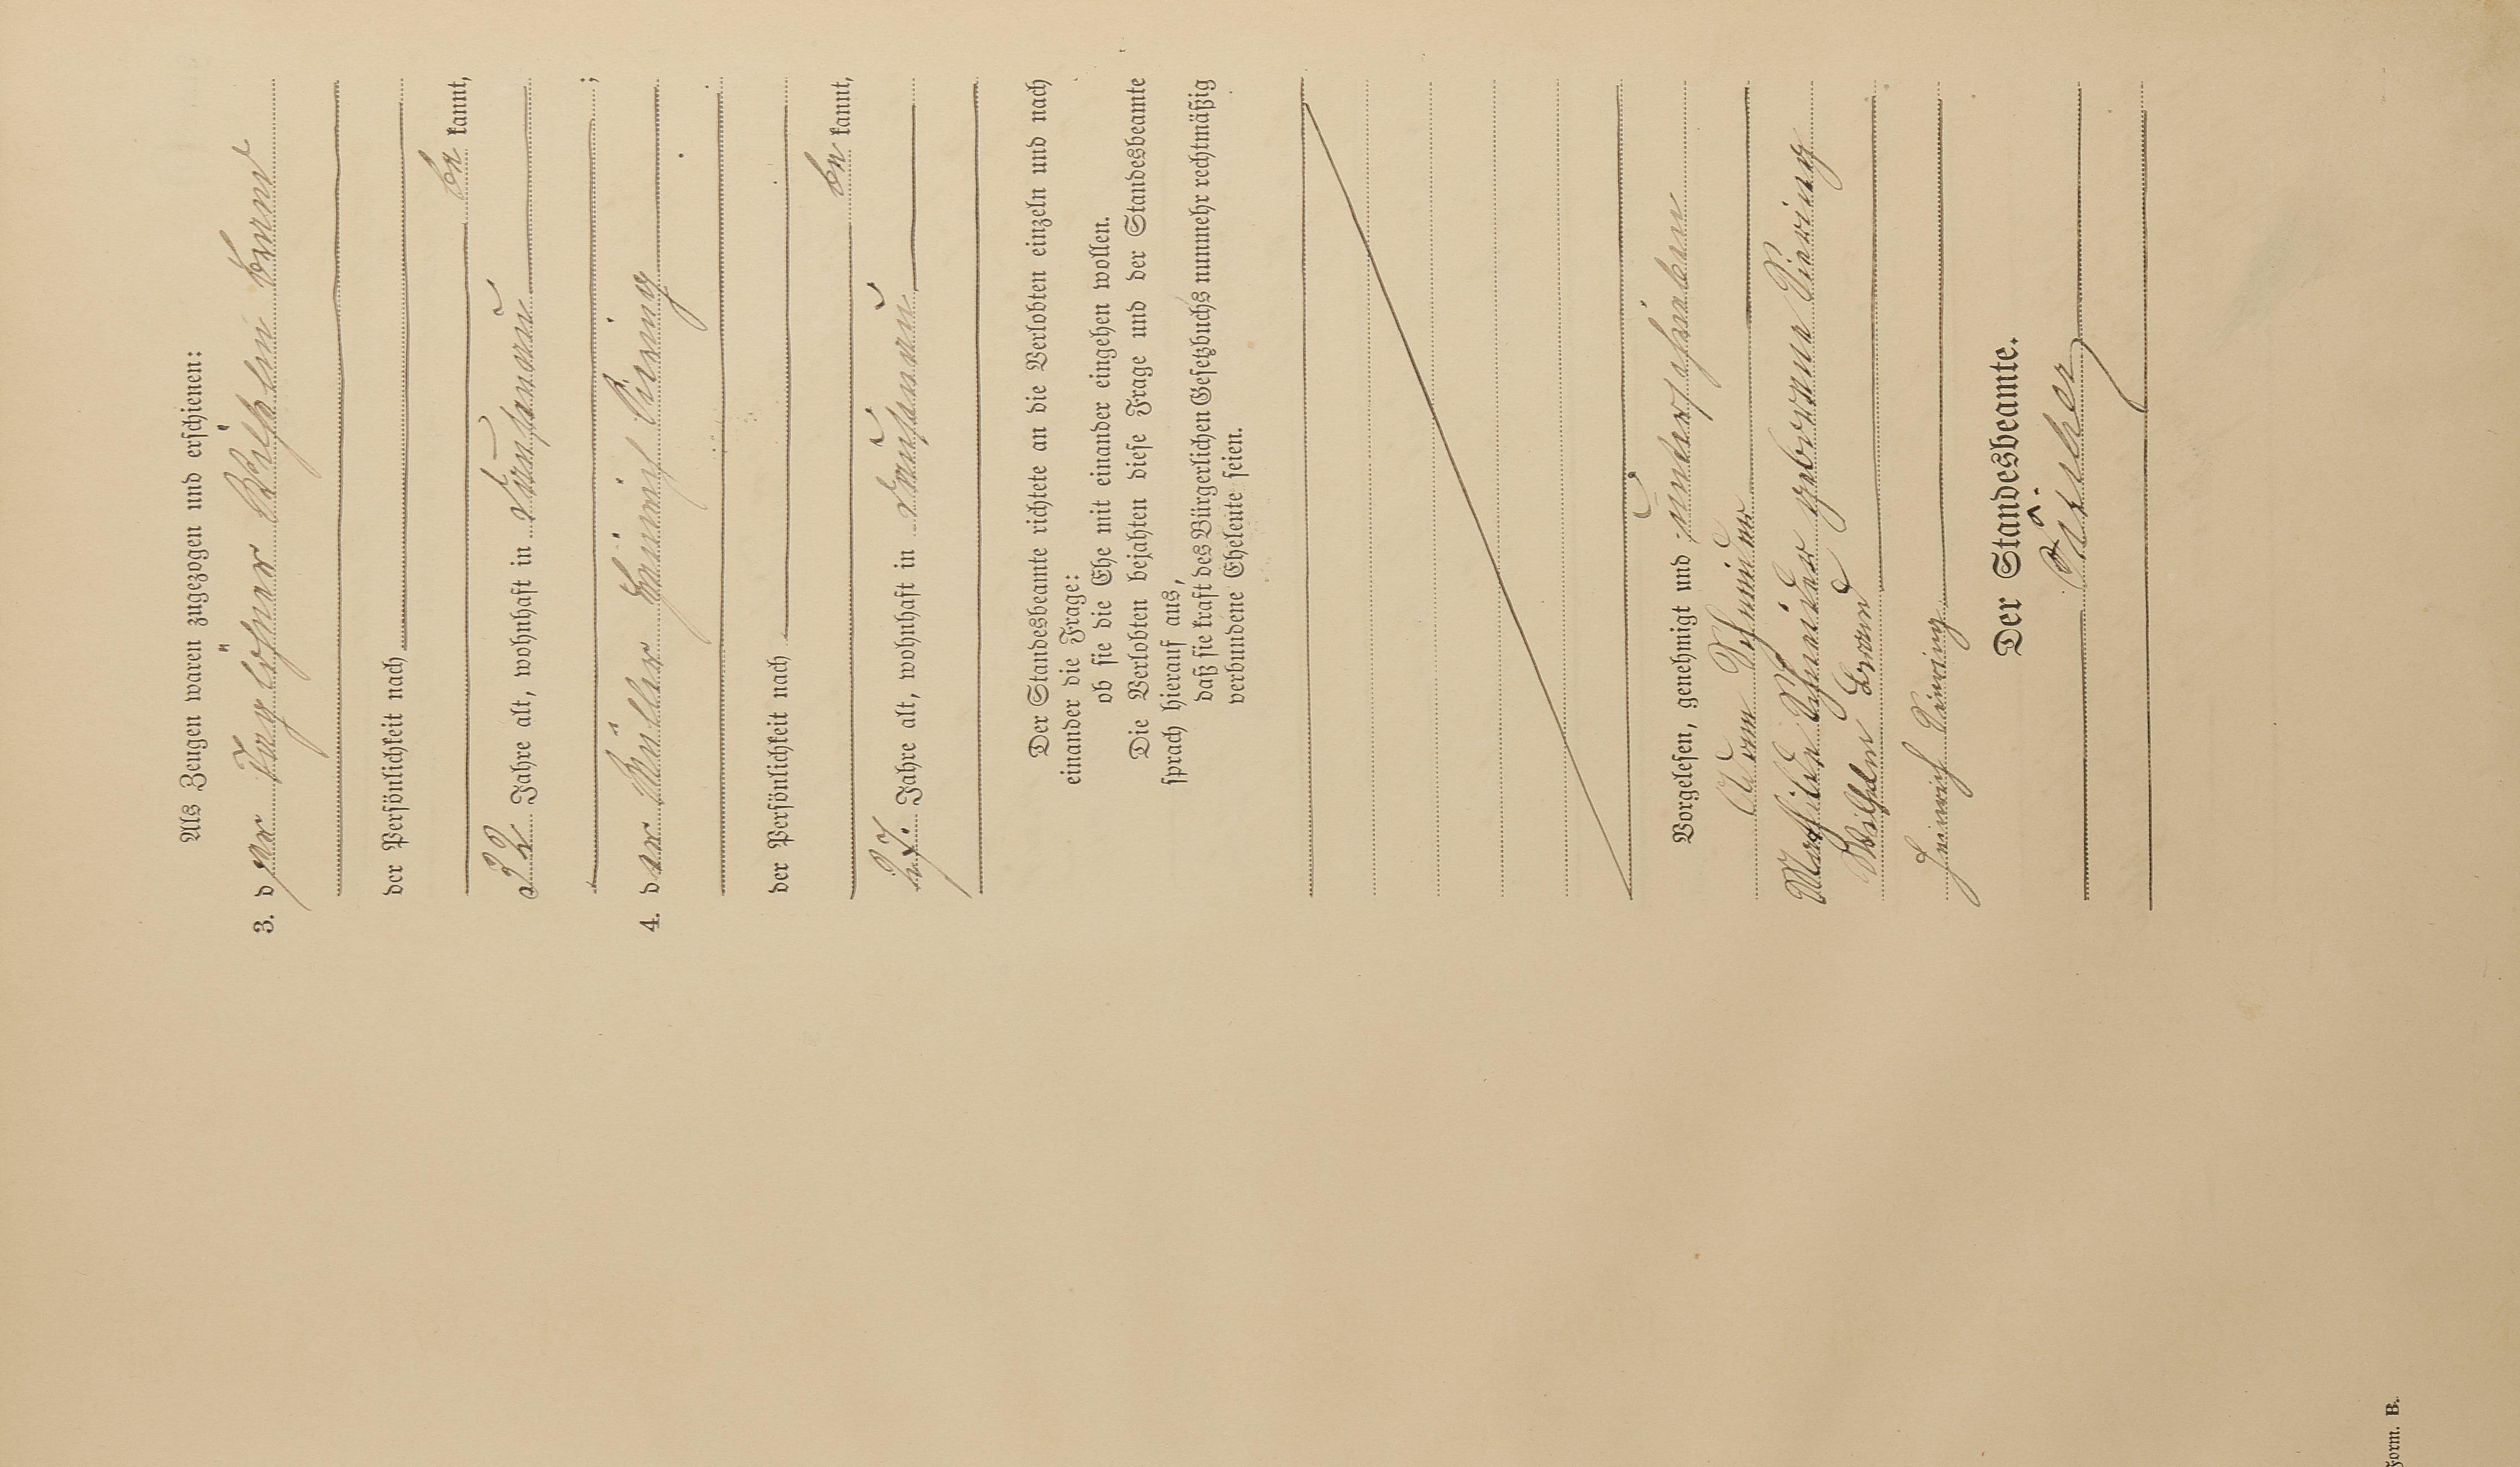 Als Zeugen waren zugezogen und erschienen:
3. der Taglöhner Wilhelm Brand
der Persönlichkeit nach
be kannt,
Jahre alt, wohnhaft in
;
4. der Müller Heinrich
der Persönlichkeit nach
be kannt,
Jahre alt, wohnhaft in
Der Standesbeamte richtete an die Verlobten einzeln und nach
einander die Frage:
ob sie die Ehe mit einander eingehen wollen.
Die Verlobten bejahten diese Frage und der Standesbeamte
sprach hierauf aus,
daß sie kraft des Bürgerlichen Gesetzbuchs nunmehr rechtmäßig
verbundene Eheleute seien.
Vorgelesen, genehmigt und unterschrieben
Adam Schneider
Mathilde Schneider geborene
Wilhelm Brand
Heinrich
Der Standesbeamte.
Form. B.